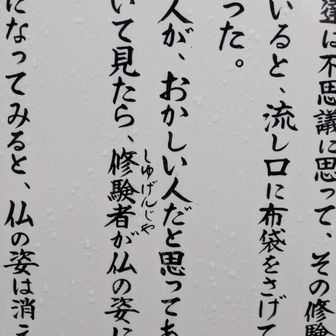 達は不思議に思って、その修験
いると、流し口に布袋をさげて
った。
人が、おかしい人だと思ってあ
しゆげんじや
いて見たら、修験者が仏の姿に
になってみると、仏の姿は消え